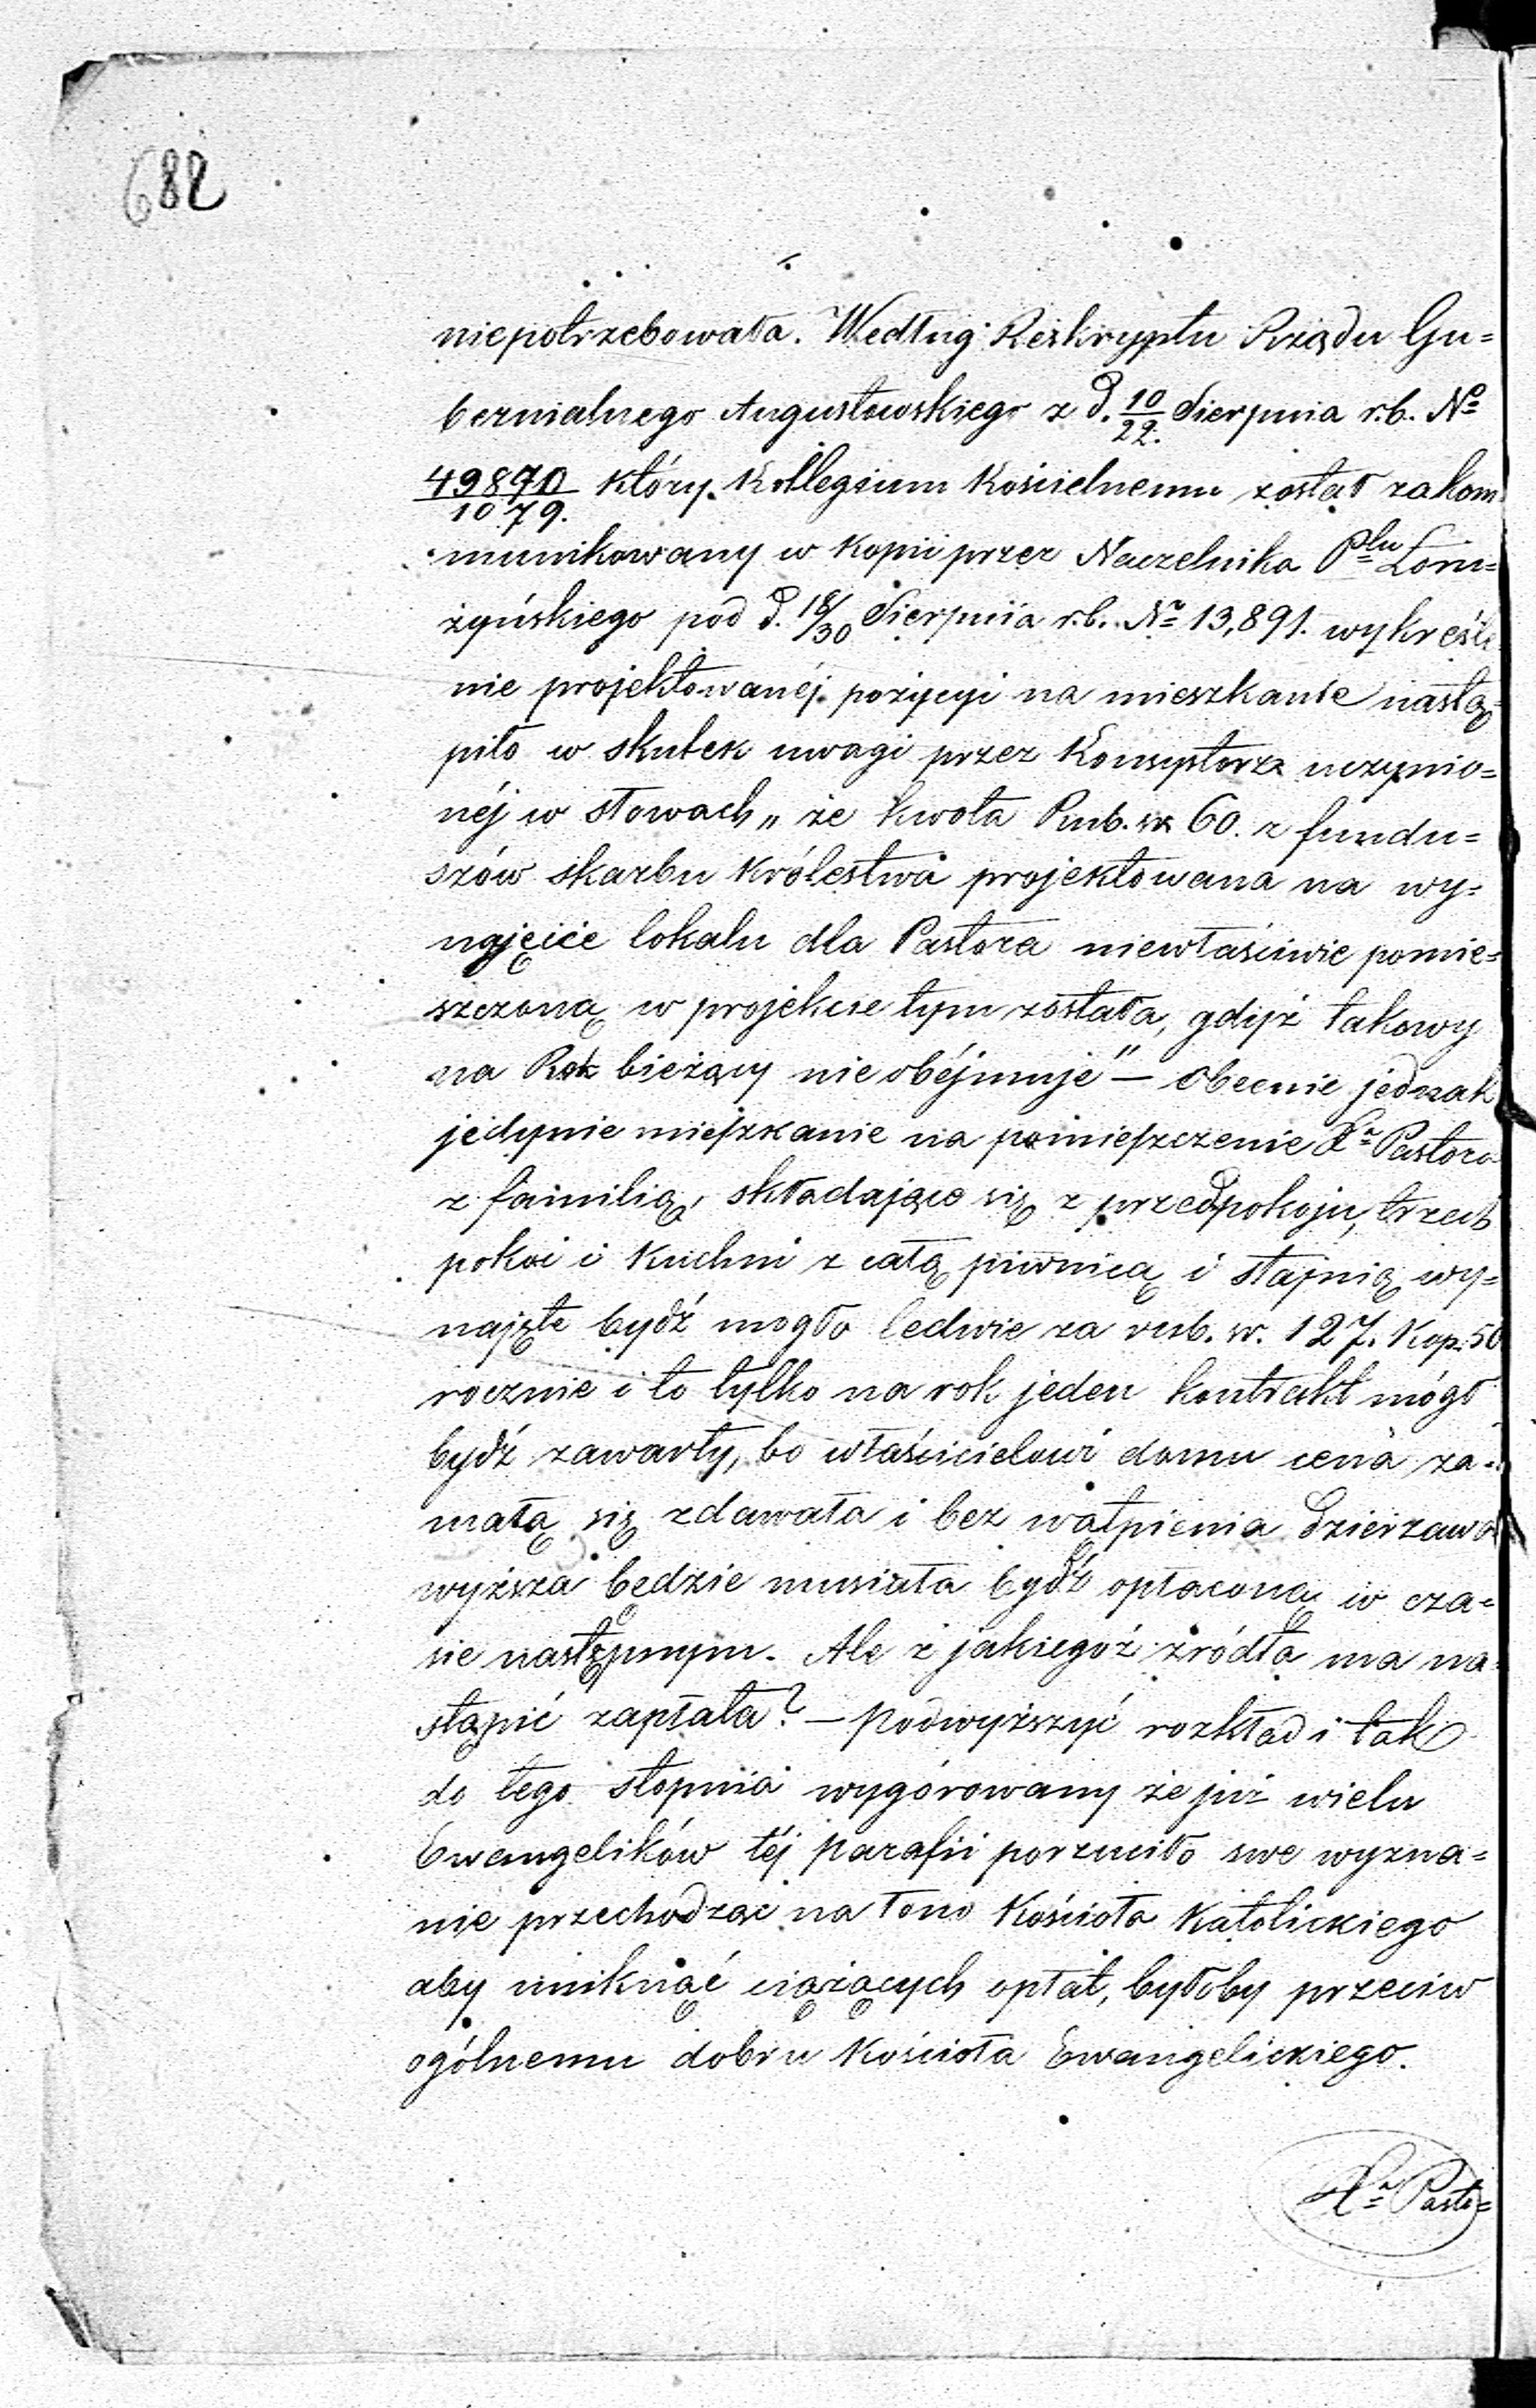 682
niepotrzebowała. Według Reskryptu Rządu Gu=
bernialnego Augustowskiego z d. 10/22. Sierpnia r.b. No
49870/1079. który Kollegium Kościelnemu został zakom
munikowany w kopii przez Naczelnika Ptu Łom=
żyńskiego pod d. 18/30 Sierpnia r.b. No 13,891. wykreśle
nie projektowanéj pozycyi na mieszkanie nastą=
piło w skutek uwagi przez Konsystorz uczynio=
néj w słowach „ że kwota Rub. sr. 60. z fundu=
szów skarbu Królestwa projektowana na wy=
najęcie lokalu dla Pastora niewłaściwie pomie=
szczoną w projekcie tym została, gdyż takowy
na Rok bieżący nie obéjmuje" — Obecnie jednak
jedynie mieszkanie na pomieszczenie Xa Pastora
z familią, składające się z przedpokoju, trzech
pokoi i kuchni z całą piwnicą i stajnią wy=
najęte bydź mogło ledwie za rub. sr. 127. Kop. 50
rocznie i to tylko na rok jeden kontrakt mógł
bydź zawarty, bo właścicielowi domu cena za=
małą się zdawała i bez wątpienia dzierzawa
wyższa będzie musiała bydź opłaconą w cza=
sie następnym. Ale z jakiegoż źródła ma na=
stąpić zapłata? — podwyższyć rozkład i tak
do tego stopnia wygórowany że już wielu
Ewangelików téj parafii porzuciło swe wyzna=
nie przechodząc na łono Kościoła Katolickiego
aby uniknąć ciążących opłat, byłoby przeciw
ogólnemu dobru Kościoła Ewangelickiego.
Xa Pasto=